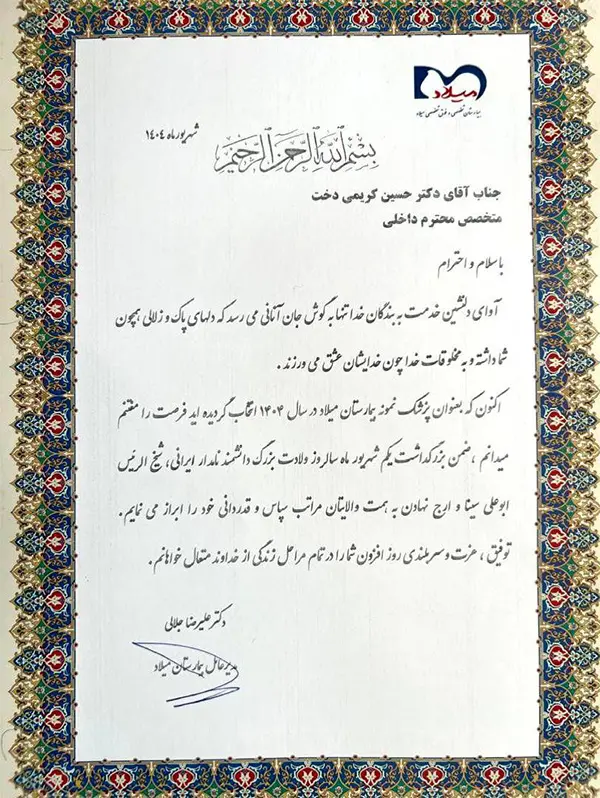 میلاد
بیمارستان تخصصی و فوق تخصصی میلاد
شهریور ماه ۱۴۰۴
بسم الله الرحمن الرحیم
جناب آقای دکتر حسین کریمی دخت
متخصص محترم داخلی
با سلام و احترام
آوای دلنشین خدمت به بندگان خدا تنها به گوش جان آنانی می رسد که دلهای پاک و زلالی همچون
شما داشته و به مخلوقات خدا چون خدایشان عشق می ورزند .
اکنون که بعنوان پزشک نمونه بیمارستان میلاد در سال ۱۴۰۴ انتخاب گردیده اید فرصت را مغتنم
میدانم ، ضمن بزرگداشت یکم شهریور ماه سالروز ولادت بزرگ دانشمند نامدار ایرانی، شیخ الرئیس
ابوعلی سینا و ارج نهادن به همت والایتان مراتب سپاس و قدردانی خود را ابراز می نمایم .
توفیق ، عزت و سربلندی روز افزون شما را در تمام مراحل زندگی از خداوند متعال خواهانم .
دکتر علیرضا جلالی
مدیرعامل بیمارستان میلاد